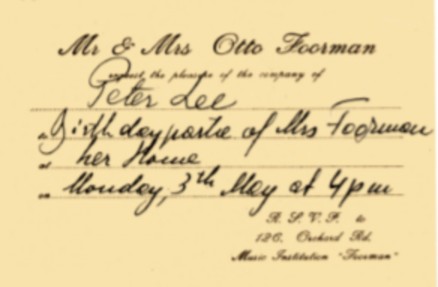 Mr & Mrs Otto Foorman
request the pleasure of the company of
Peter Lee
Birthday partie of Mrs Foorman
at her Home
on Monday, 3th May at 4 pm
R. S. V. P. to
126, Orchard Rd.
Music Institution "Foorman"